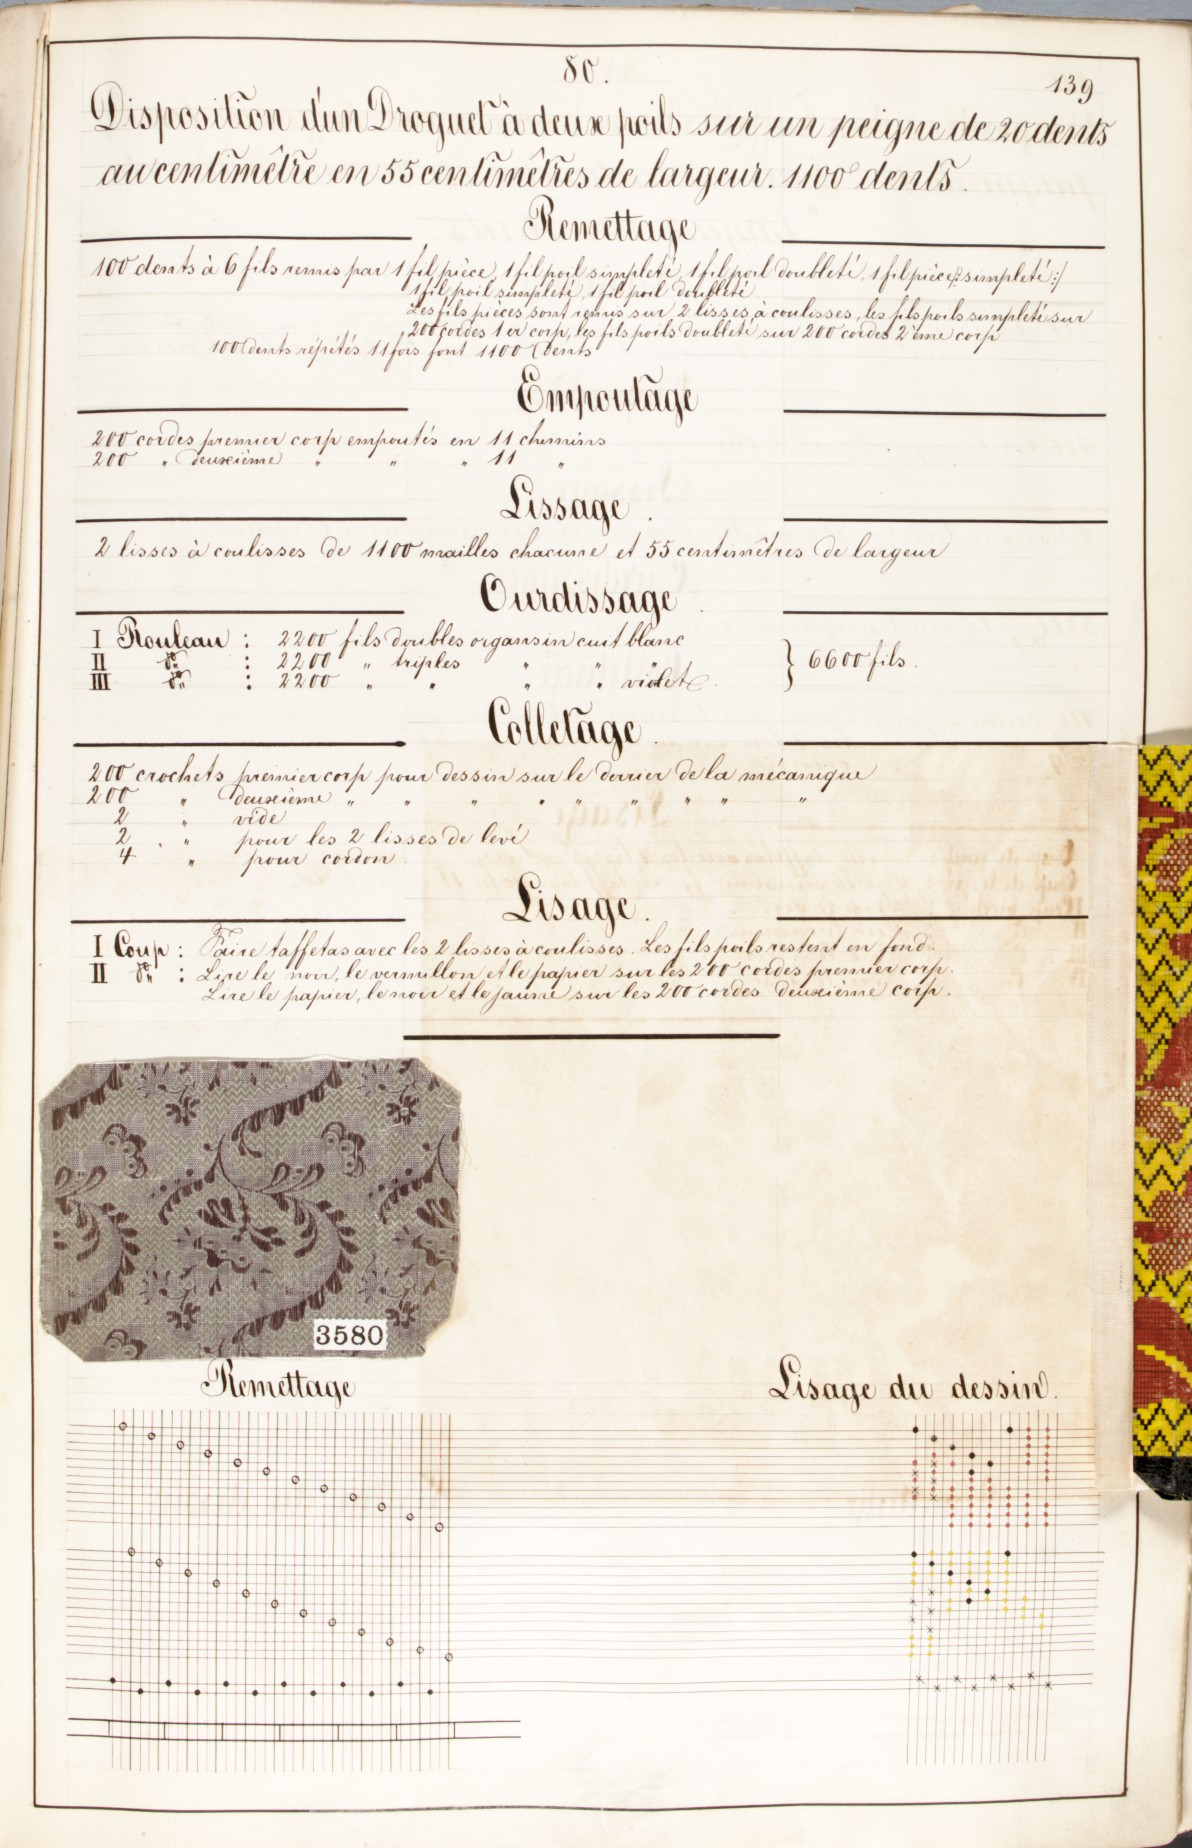 80.
139
Disposition d'un Droguet à deux poils sur un peigne de 20 dents
au centimêtre en 55 centimêtres de largeur. 1100 dents.
Remettage
100 dents à 6 fils remis par 1 fil pièce, 1 fil poil simpleté, 1 fil poil doubleté, 1 fil pièce /: simpleté :/
1 fil poil simpleté, 1 fil poil doubleté
Les fils pièces sont remis sur 2 lisses à coulisses, les fils poils simpleté sur
200 cordes 1er corp, les fils poils doubleté sur 200 cordes 2ème corp
100 dents répétés 11 fois font 1100 dents
Empoutage
200 cordes premier corp empoutés en 11 chemins
200 " deuxième " " " 11 "
Lissage.
2 lisses à coulisses de 1100 mailles chacune et 55 centimêtres de largeur
Ourdissage.
I Rouleau : 2200 fils doubles organsin cuit blanc
II do : 2200 " triples " " "
III do : 2200 " " " " violet.
} 6600 fils.
Colletage.
200 crochets premier corp pour dessin sur le derrier de la mécanique
200 " deuxième " " " " " " " " "
2 " vide
2 " pour les 2 lisses de levé
4 " pour cordon
Lisage.
I Coup : Faire taffetas avec les 2 lisses à coulisses. Les fils poils restent en fond.
II do : Lire le noir, le vermillon et le papier sur les 200 cordes premier corp.
Lire le papier, le noir et le jaune sur les 200 cordes deuxième corp.
3580
Remettage
Lisage du dessin.